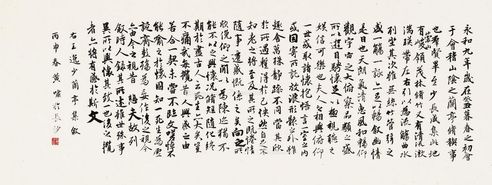 永和九年歲在癸丑暮春之初會
于會稽山陰之蘭亭脩禊事
也羣賢畢至少長咸集此地
有峻領茂林脩竹又有清流激
湍暎帶左右引以為流觴曲水
列坐其次雖無絲竹管弦之
盛一觴一詠亦足以暢敘幽情
是日也天朗氣清惠風和暢仰
觀宇宙之大俯察品類之盛
所以遊目騁懷足以極視聽之
娛信可樂也夫人之相與俯仰
一世或取諸懷抱悟言一室之內
或因寄所託放浪形骸之外雖
趣舍萬殊靜躁不同當其欣
於所遇暫得於己怏然自足不
知老之將至及其所之既惓情
隨事遷感慨係之矣向之所
欣俛仰之間以為陳迹猶不
能不以之興懷況脩短隨化終
期於盡古人云死生亦大矣豈
不痛哉每攬昔人興感之由
若合一契未嘗不臨文嗟悼不
能喻之於懷固知一死生為虛
誕齊彭殤為妄作後之視今
亦由今之視昔悲夫故列
敘時人錄其所述雖世殊事
異所以興懷其致一也後之攬
者亦將有感於斯文
右王逸少蘭亭集敘
丙申春黃於長沙